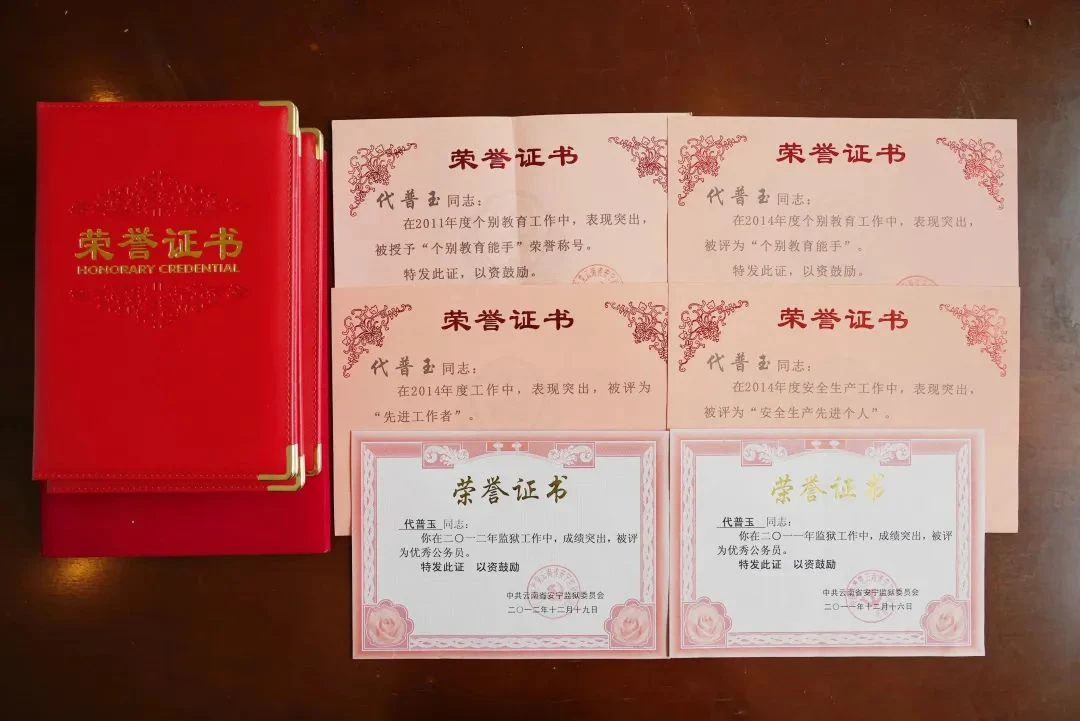 荣誉证书
HONORARY CREDENTIAL
荣誉证书
代普玉同志：
在2011年度个别教育工作中，表现突出，
被授予“个别教育能手”荣誉称号。
特发此证，以资鼓励。
荣誉证书
代普玉同志：
在2014年度个别教育工作中，表现突出，
被评为“个别教育能手”。
特发此证，以资鼓励。
荣誉证书
代普玉同志：
在2014年度工作中，表现突出，被评为
“先进工作者”。
荣誉证书
代普玉同志：
在2014年度安全生产工作中，表现突出，
被评为“安全生产先进个人”。
荣誉证书
代普玉 同志：
你在二〇一二年监狱工作中，成绩突出，被评
为优秀公务员。
特发此证 以资鼓励
中共云南省安宁监狱委员会
二〇一二年十二月十九日
荣誉证书
代普玉 同志：
你在二〇一一年监狱工作中，成绩突出，被评
为优秀公务员。
特发此证 以资鼓励
中共云南省安宁监狱委员会
二〇一一年十二月十六日